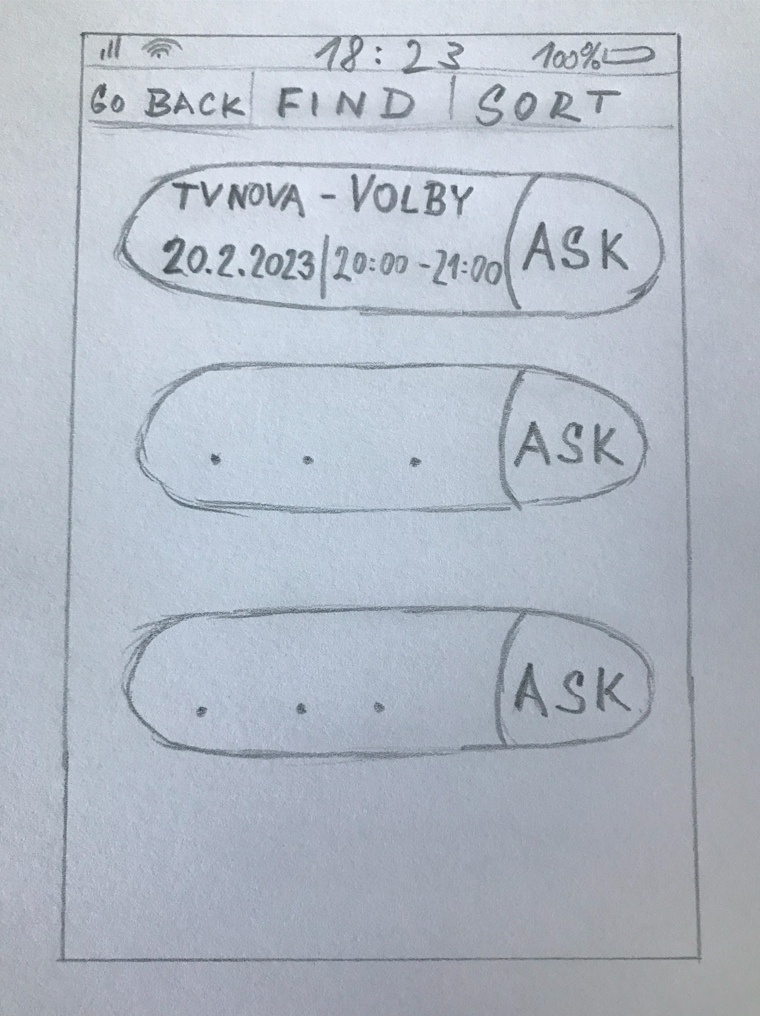 18:23 100%
GO BACK | FIND | SORT
TV NOVA - VOLBY
20.2.2023 | 20:00 - 21:00
ASK
. . .
ASK
. . .
ASK